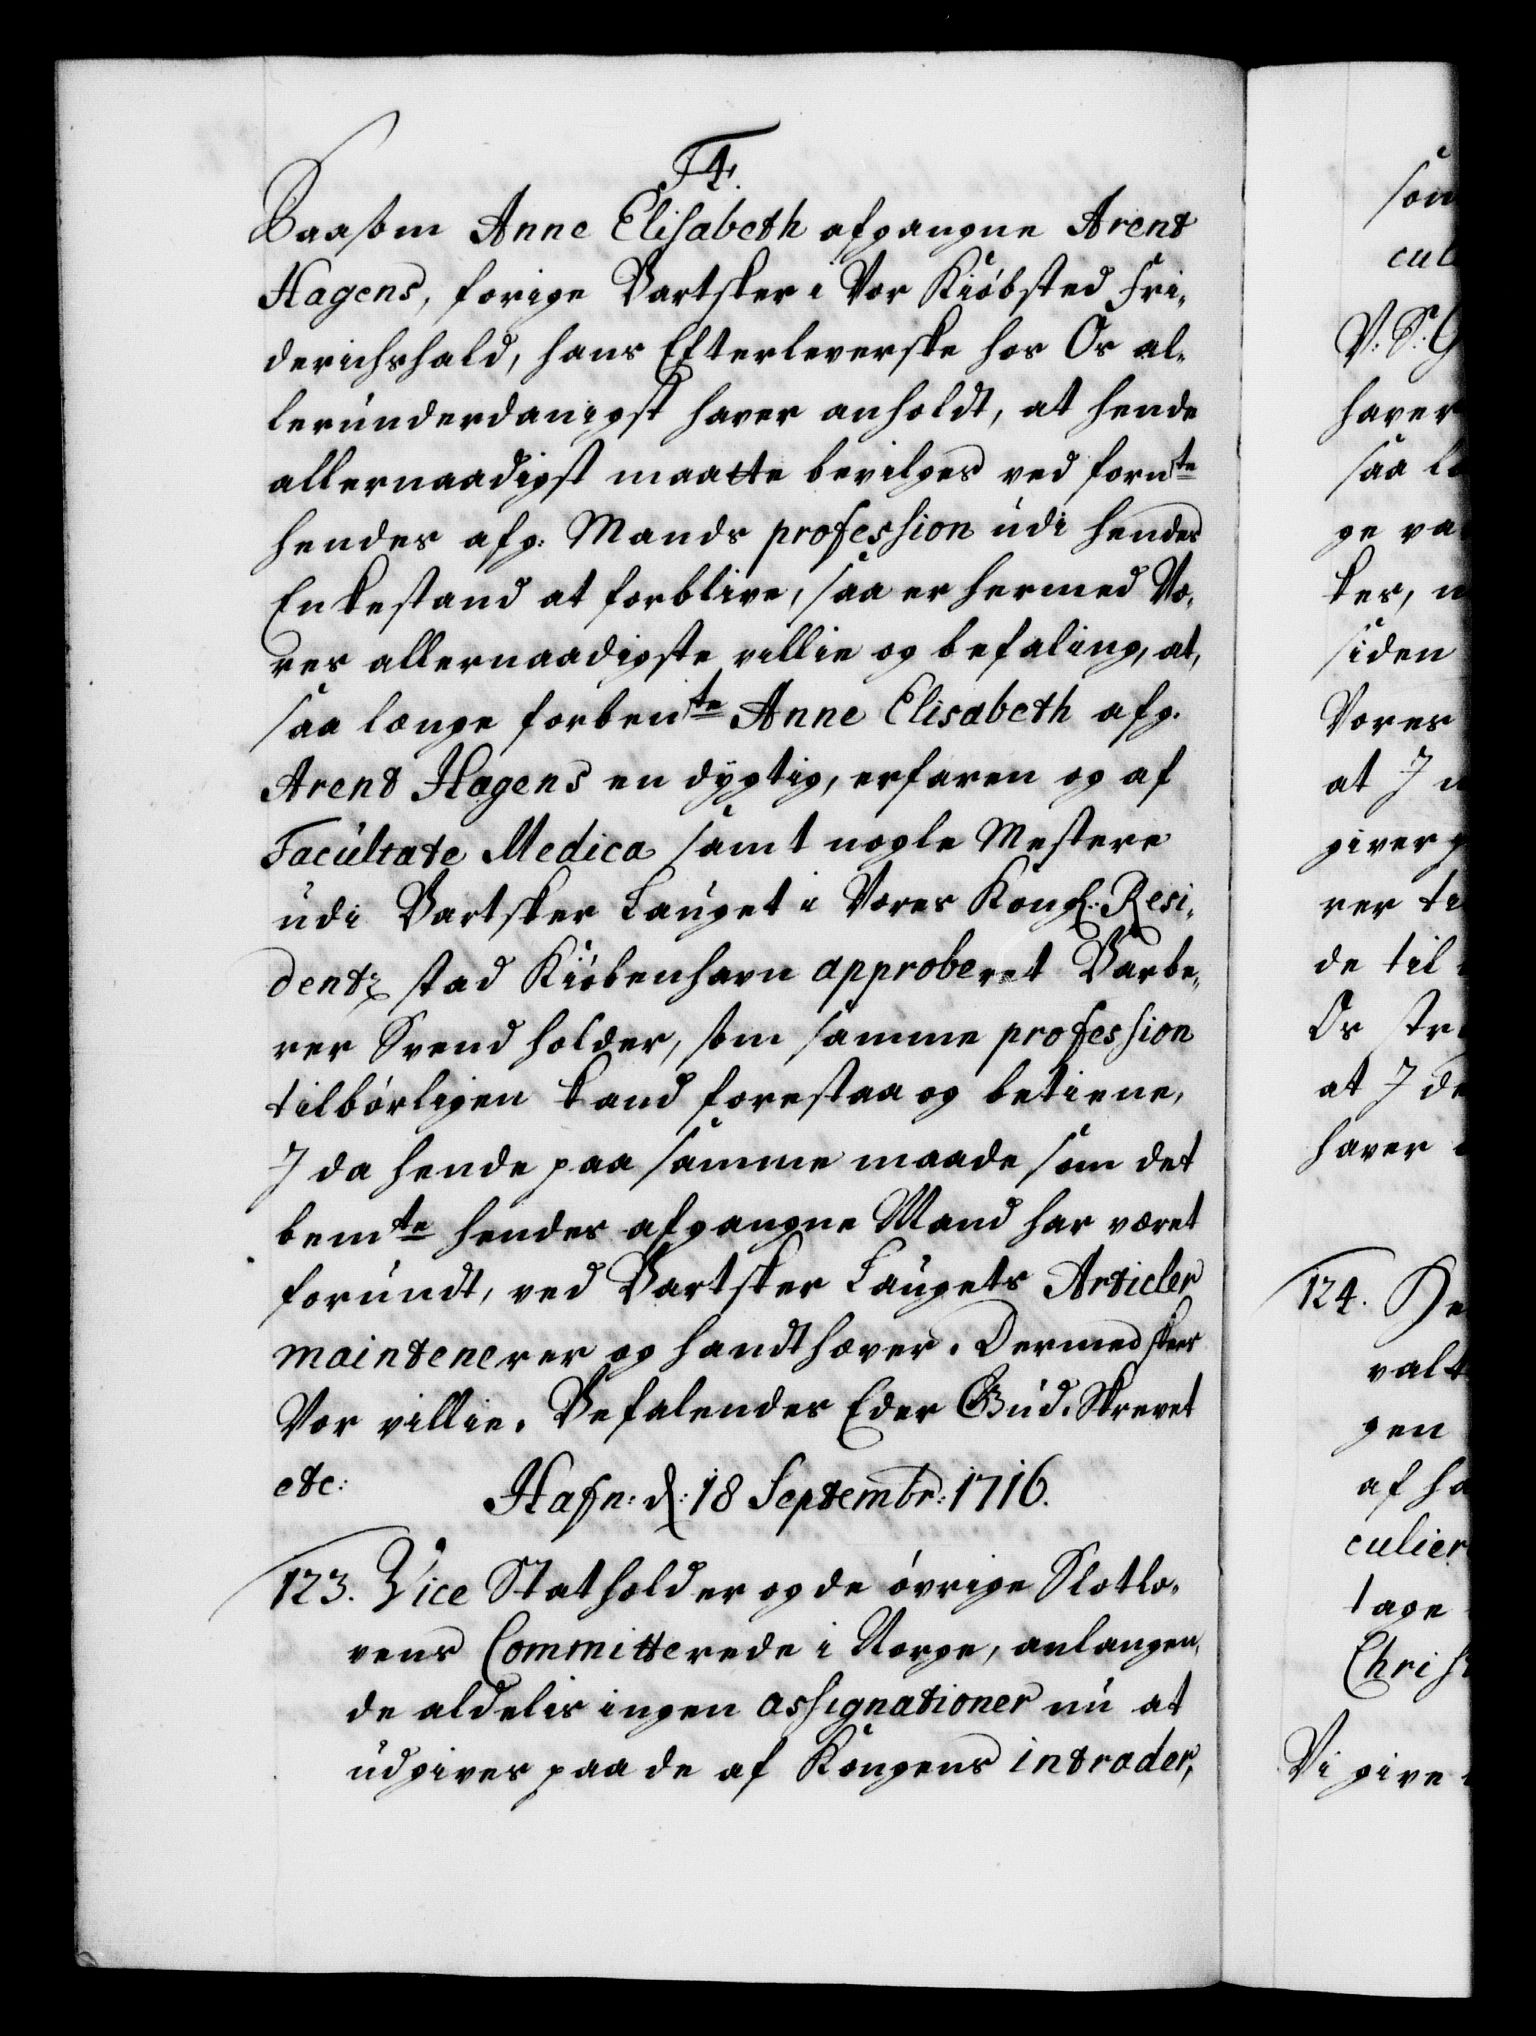 F4.
Saasom Anne Elisabeth afgangne Arent
Hagens, forige Bartsker i Vor Kiøbsted Fri-
derichshald, hans Efterleverske hos Os al-
lerunderdanigst haver anholdt, at hende
allernaadigst maatte bevilges ved fornte
hendes afg: Mands profession udi hendes
Enkestand at forblive, saa er hermed Vo-
res allernaadigste villie og befaling, at,
saa længe forbente Anne Elisabeth afg.
Arent Hagens en dygtig, erfaren og af
Facultate Medica samt nogle Mestere
udi Bartsker Lauget i Vores Kongl: Resi-
dentz stad Kiøbenhavn approberet Barbe-
rer Svend holder, som samme profession
tilbørligen kand forestaa og betiene,
I da hende paa samme maade som det
bemte hendes afgangne Mand har været
forundt, ved Bartsker Laugets Articler
maintenerer og handthæver. Dermed skeer
Vor villie. Befalendes Eder Gud. Skrevet
etc: Hafn: d: 18 Septembr: 1716.
123. Vice Statholder og de øvrige Slotlo-
vens Committerede i Norge, anlangen-
de aldelis ingen assignationer nu at
udgives paa de af Kongens intrader,
som
cul
V: S: G
haver
saa læ
ge va
ker, n
siden
Vores
at I
giver
rer ti
de til
Os str
at I de
haver
124. He
valt
gen
af ha
culier
tage
Christ
Vi give